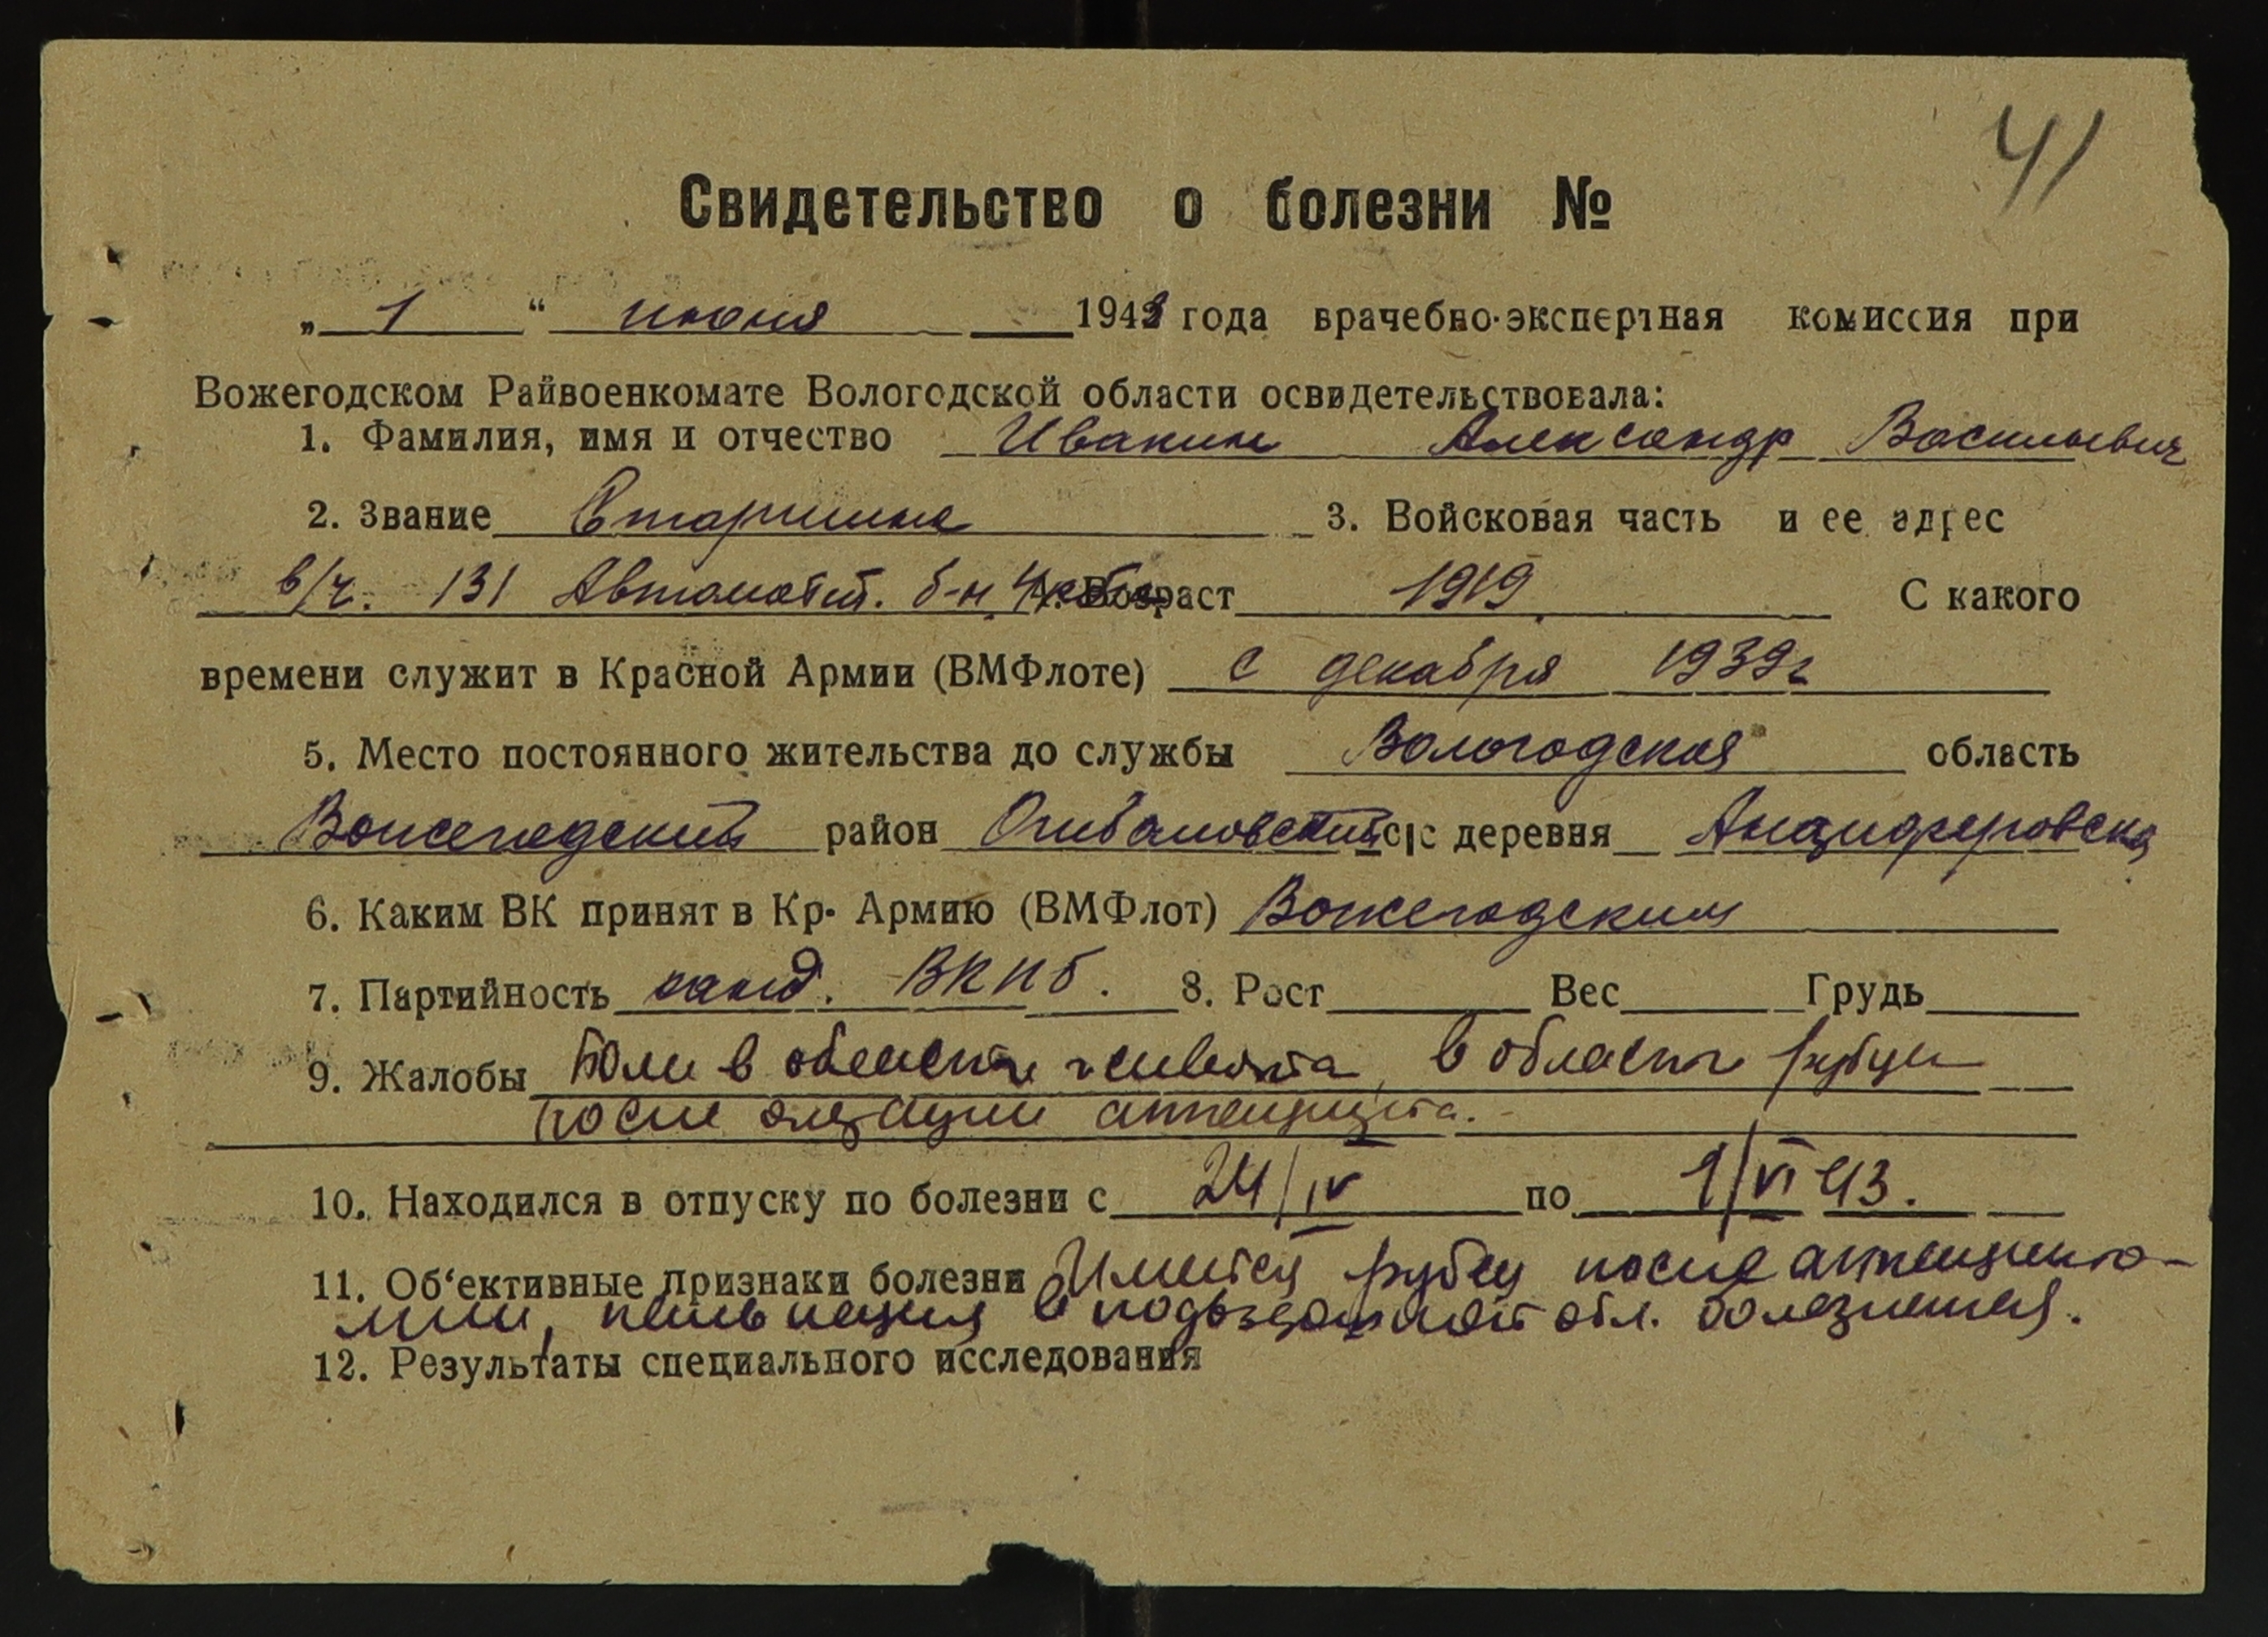 41
Свидетельство о болезни №
„ 1 “ июня 1943 года врачебно-экспертная комиссия при
Вожегодском Райвоенкомате Вологодской области освидетельствовала:
1. Фамилия, имя и отчество Ивакин Александр Васильевич
2. Звание Старшина 3. Войсковая часть и ее адрес
в/ч. 131 Автоматн. б-н. 4. Возраст 1919 С какого
времени служит в Красной Армии (ВМФлоте) с декабря 1939г
5. Место постоянного жительства до службы Вологодская область
Вожегодский район Огибаловский с|с деревня Анциферовска
6. Каким ВК принят в Кр. Армию (ВМФлот) Вожегодским
7. Партийность канд. ВКПб. 8. Рост Вес Грудь
9. Жалобы Боли в области живота, в области рубца
после операции аппендицита.
10. Находился в отпуску по болезни с 24/IV по 1/VI 43.
11. Об‘ективные признаки болезни Имеется рубец после аппендэкто-
мии, пальпация в подвздошной обл. болезненая.
12. Результаты специального исследования